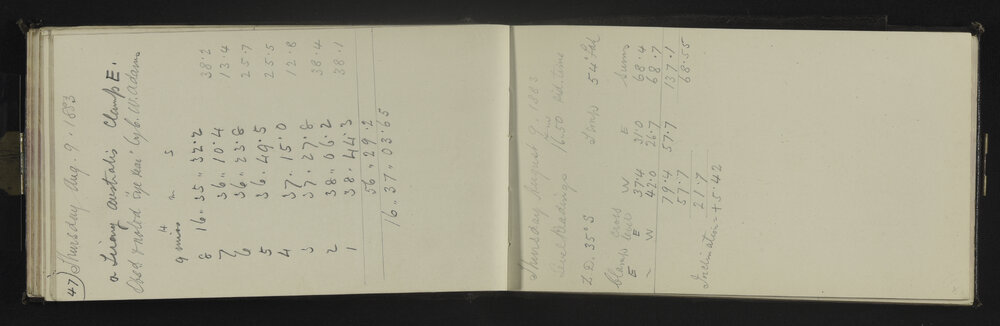 47) Thursday Aug. 9. 1883
α Triang Australis Clamp E.
Obsd & noted "eye & ear" by C. W. Adams
h m s
9 miss
8 16" 35" 32.2 38.2
7 36" 10.4 13.4
6 36" 23.8 25.7
5 36. 49.5 25.5
4 37. 15.0 12.8
3 37. 27.8 38.4
2 38" 06.2 38.1
1 38. 44.3
56" 29.2
16" 37" 03.65
Thursday August 9. 1883
Level Readings 16.50
Z.D. 35° S Temp 54° Fah
Clamp Cross level W E Sums
E E 37.4 31.0 68.4
" W 42.0 26.7 68.7
79.4 57.7 137.1
57.7 68.55
21.7
Inclination = +5.42